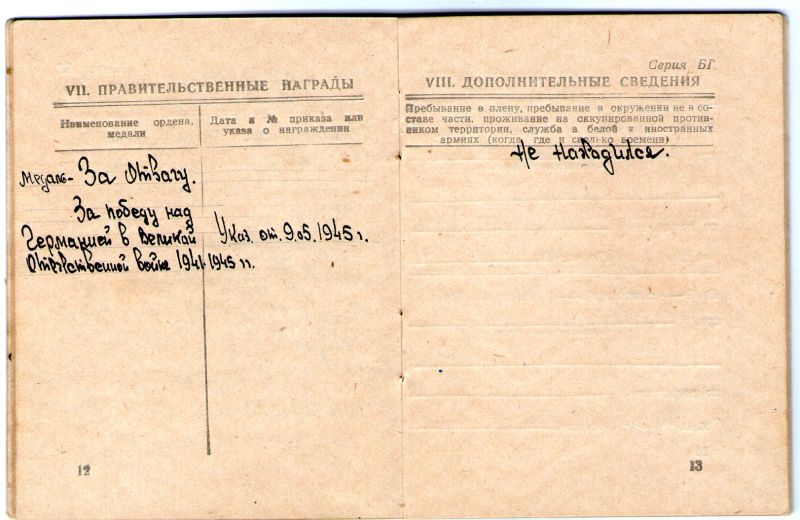 VII. ПРАВИТЕЛЬСТВЕННЫЕ НАГРАДЫ
Наименование ордена,
медали
Дата и № приказа или
указа о награждении
Медаль - За Отвагу.
За победу над
Германией в Великой
Отечественной войне 1941-1945 гг.
Указ. от. 9.05.1945 г.
12
Серия БГ.
VIII. ДОПОЛНИТЕЛЬНЫЕ СВЕДЕНИЯ
Пребывание в плену, пребывание в окружении не в со-
ставе части, проживание на оккупированной против-
ником территории, служба в белой и иностранных
армиях (когда, где и сколько времени)
Не находился.
13